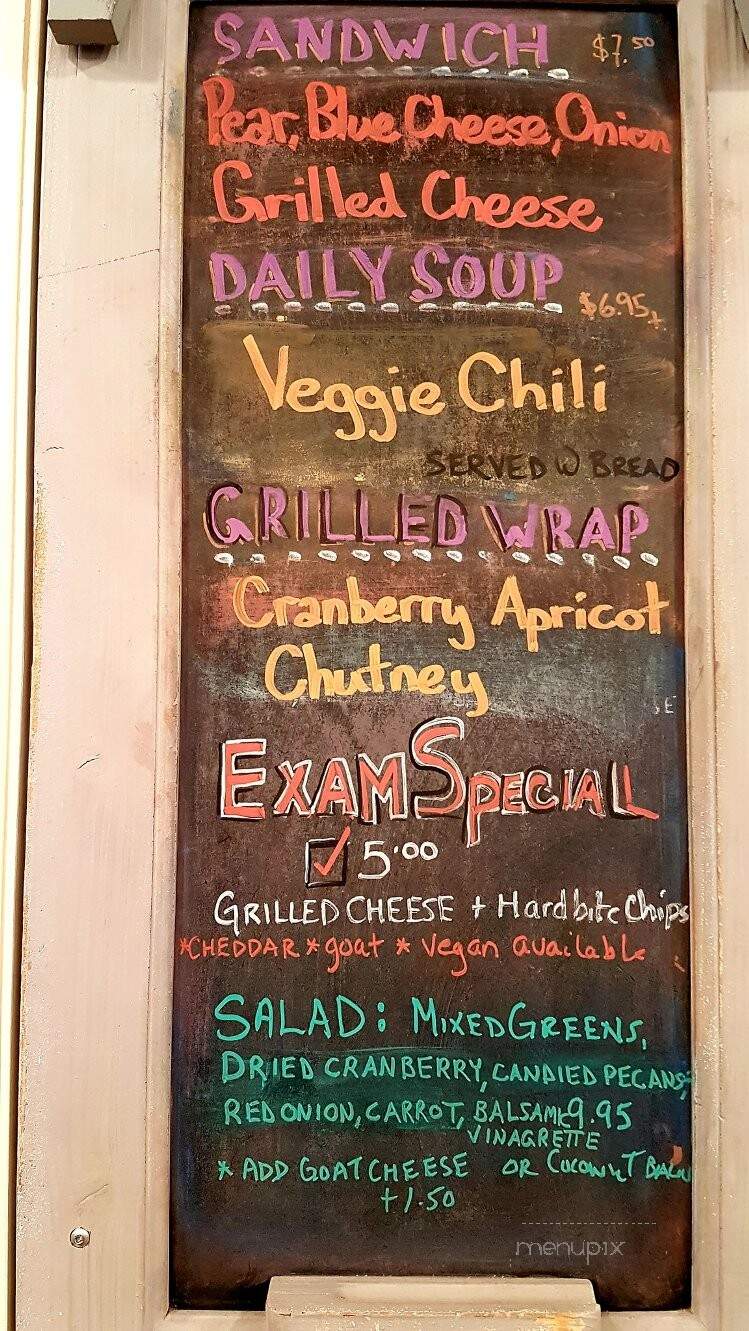 SANDWICH $7.50
Pear, Blue Cheese, Onion
Grilled Cheese
DAILY SOUP $6.95+
Veggie Chili
SERVED W BREAD
GRILLED WRAP
Cranberry Apricot
Chutney
EXAM SPECIAL
5.00
GRILLED CHEESE + Hardbite Chips
*CHEDDAR *goat * Vegan available
SALAD: MIXED GREENS,
DRIED CRANBERRY, CANDIED PECANS,
RED ONION, CARROT, 9.95
VINAGRETTE
* ADD GOAT CHEESE OR COCONUT
+1.50
menupix